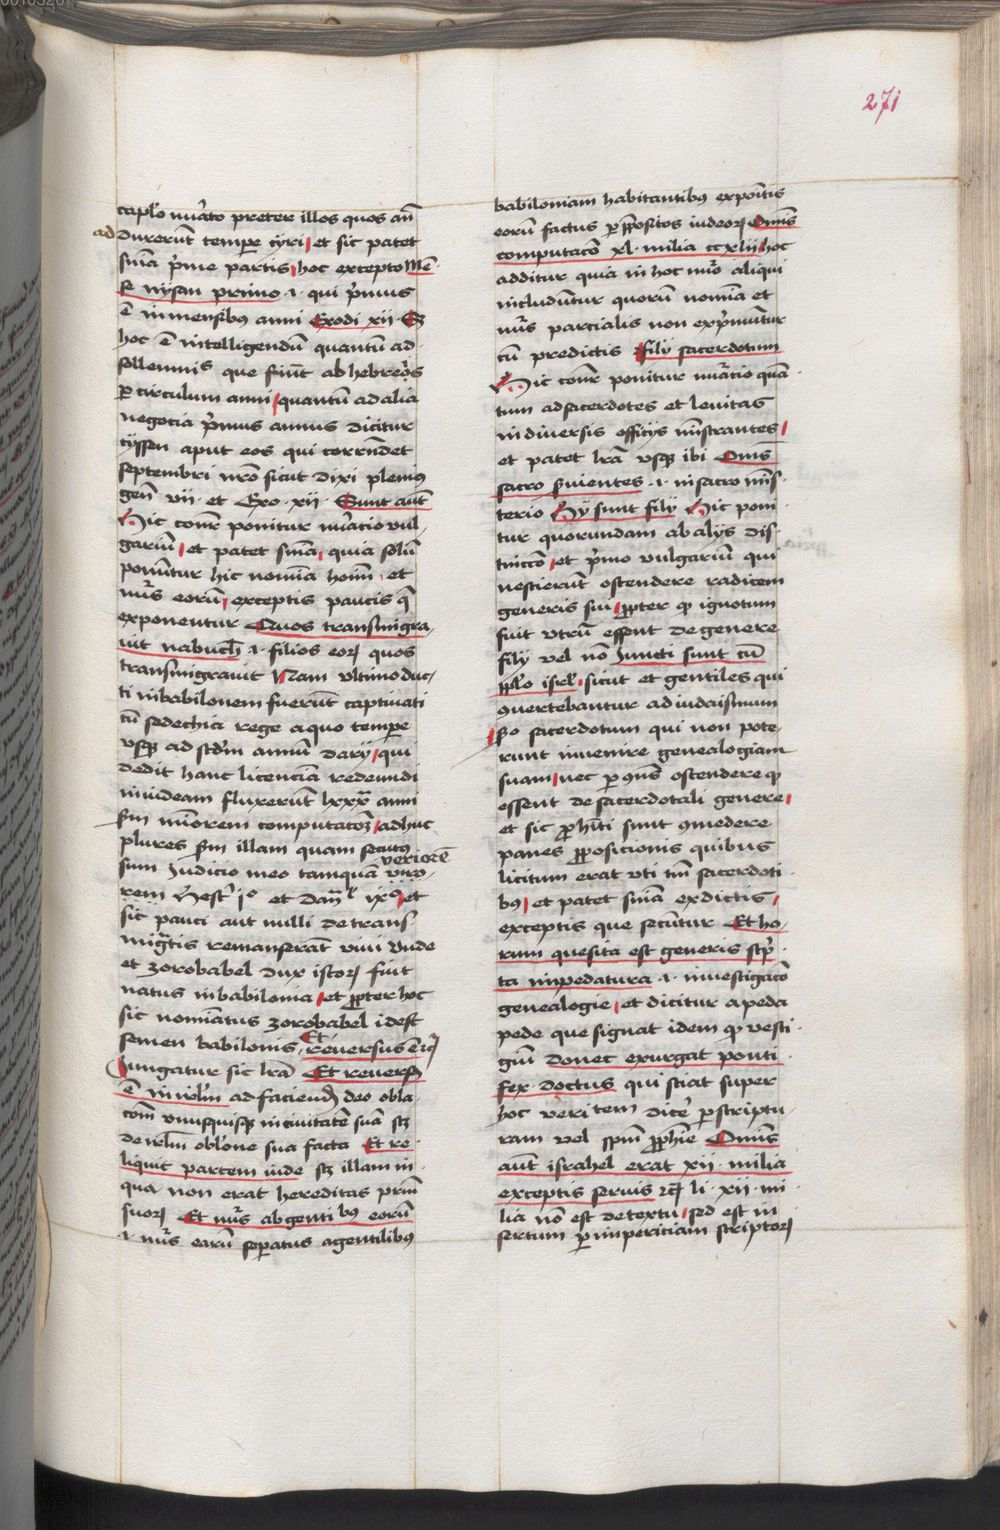 271
caplo nũato preter illos quos añ
ad duxerũt tempe cyri et sic patet
sñia p̃me partis hoc excepto Mẽ
se nysan primo .i. qui p̃mus
ẽ in mensibus anni Exodi xii Et
hoc ẽ intelligendũ quantũ ad
sollemnis que fiũt ab hebreos
per circulum anni quantũ ad alia
negocia p̃mus annus dicitur
tyssen aput eos qui correspõdet
septembri nr̃o sicut dixi plenius
geñ vii et Exo xii Sunt aut̃
Hic conr̃ ponitur nũatio vul
gariũ et patet sñia quia solũ
ponũtur hic nomĩa hoĩm et
nũs eorũ exceptis paucis q̃
exponentur Quos transmigra
vit nabuch̃ .i. filios eorum quos
transmigravit Nam ultimo duc
ti in babilonem fuerũt captivati
cũ sedechia rege a quo tempe
usque ad scd̃m annũ darij qui
dedit hanc licenciã redeundi
in iudeam fluxerũt lxxx anni
sm̃ miñorem computacoẽ adhuc
plures sm̃ illam quam secutus
sum Judicio meo tamquã
veriorẽ
rem Hest̃ i° et Dañ ix° et
sic pauci aut nulli de trans
migr̃tis remanserãt vivi Unde
et zorobabel dux istorum fuit
natus in babilonia et propter hoc
sic nomĩatus zorobabel idest
semen babilonis Et reversus ẽ
Jungatur sic lr̃a Et revers
ẽ in irlm̃ ad faciend̃ deo obla
com̃ unusquisque in civitatẽ suã
de irlm̃ obl̃one sua facta Et re
liquit partem inde illam in
qua non erat hereditas prim̃
suorum Et nũs ab gentibus eorũ
.i. nũs earũ separatus a gentilibus
babiloniam habitantibus expoĩtis
eorũ factus per prepositos iudeorum Omĩs
computaco xl milia ccxlii hoc
additur quia in hoc nũo aliqui
includũtur quorũ nomĩa et
nũs parcialis non exp̃muntur
cũ predictis filij sacerdotum
Hic conr̃ ponitur nũacio quã
tum ad sacerdotes et levitas
in diversis officijs ministrantes
et patet lr̃a usque ibi Omĩs
sacro servientes .i. in sacro mĩs
terio Hy sunt filij Hic poni
tur quorundam ab alijs dis
tinccõ et p̃mo vulgariũ qui
nescierũt ostendere radicem
generis sui propter quod ignotum
fuit utrũ essent de genere
filij vel nõ Juncti sunt cũ
pplo isrl̃ sicut et gentiles qui
convertebantur ad iudaismum
sacerdotum qui non pote
runt invenire genealogiam
suam nec per cons̃ ostendere quod
essent de sacerdotali genere
et sic prohĩti sunt comedere
panes proposicionis quibus
licitum erat uti tm̃ sacerdoti
bus et patet sñia ex dictis
exceptis que secũtur Et ho
rum quesita est generis scp̃
ta inpedatura .i. investigacõ
genealogie et dicitur a peda
pede que signat idem quod vesti
giũ donec exurgat ponti
fex doctus qui sciat super
hoc veritem dice per scriptu
ram vel spm̃ prophie Omnis
aut̃ israhel erat xii milia
exceptis servis li xii mi
lia nõ est de textu sed est in
sertum per imperitiam scriptorum